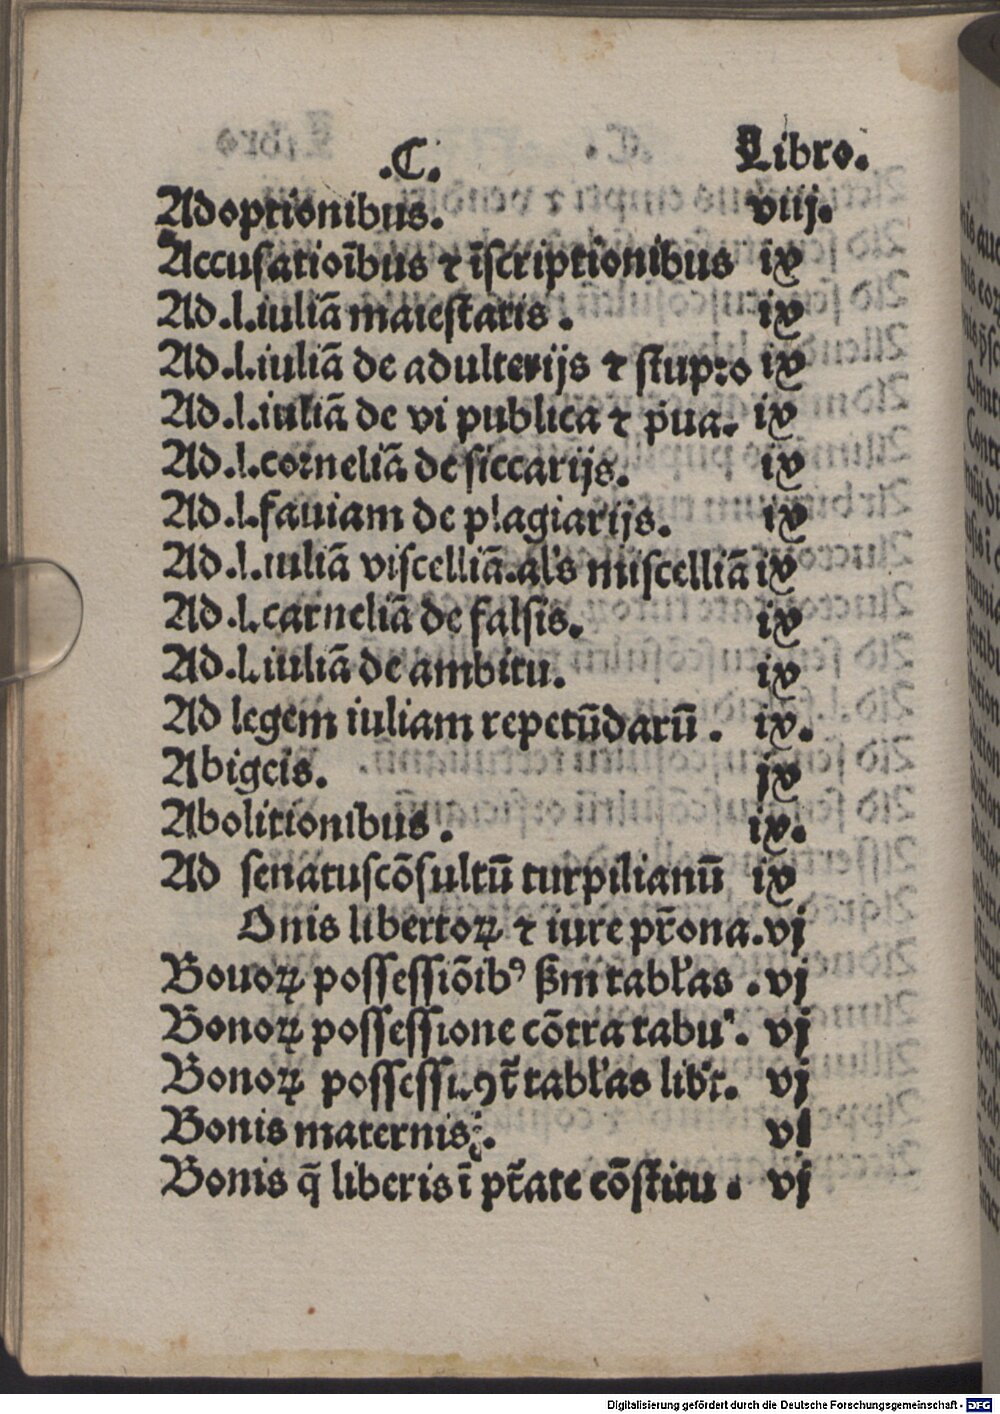 .C. Libro.
Adoptionibus. viij.
Accusatioībus ⁊ īscriptionibus ix
Ad.l.iuliā maiestatis. ix
Ad.l.iuliā de adulterijs ⁊ stupro ix
Ad.l.iuliā de vi publica ⁊ p̄ua. ix
Ad.l.corneliā de siccarijs. ix
Ad.l.faviam de plagiarijs. ix
Ad.l.iuliā viscelliā.al's miscelliā ix
Ad.l.carneliā de falsis. ix
Ad.l.iuliā de ambitu. ix
Ad legem iuliam repetūdarū. ix.
Abigeis. ix
Abolitionibus. ix.
Ad senatuscōsultū turpilianū ix
Onis libertoꝝ ⁊ iure pr̄ona. vj
Bouoꝝ possessiōibꝰ ẜm tabl'as. vj
Bonoꝝ possessione cōtra tabu'. vj
Bonoꝝ possessi. ꝯt̄ tabl'as lib'r. vj
Bonis maternis. vj
Bonis q̄ liberis ī pt̄ate cōstitu. vj
Digitalisierung gefördert durch die Deutsche Forschungsgemeinschaft - DFG